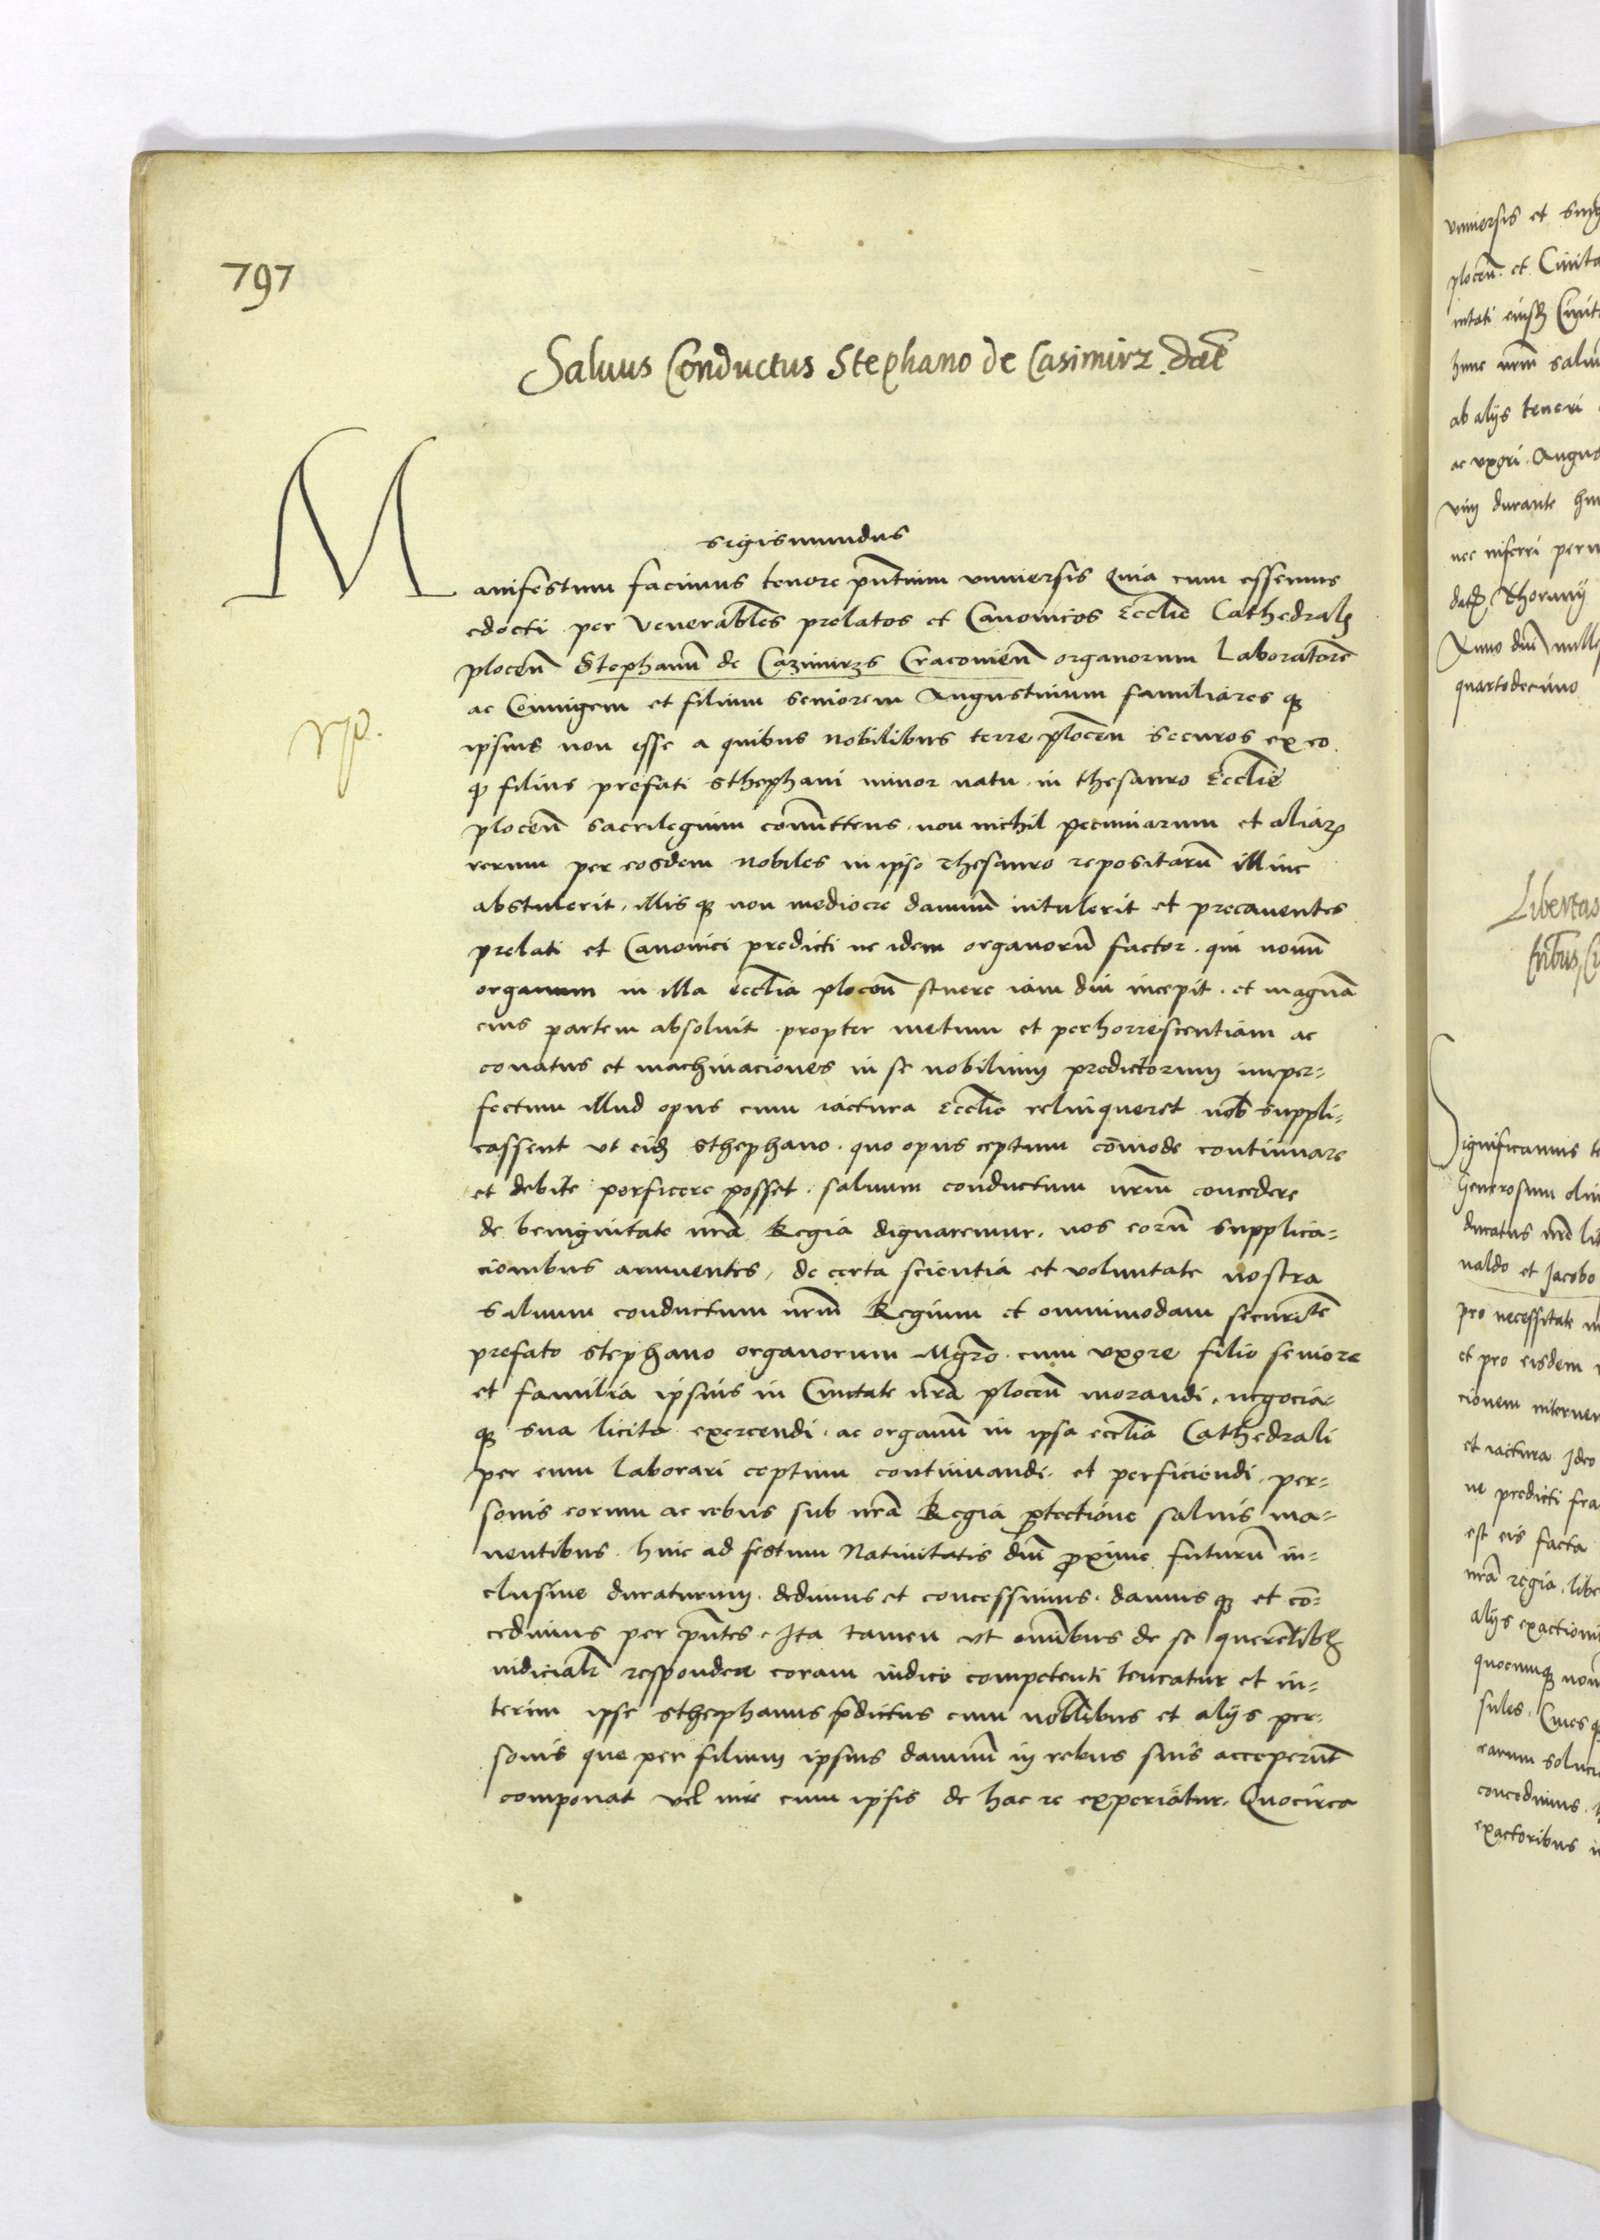 797
Saluus Conductus Stephano de Casimirz. dat̃
sigismundus
Manifestum facimus tenore pñtium vniuersis Quia cum essemus
edocti per Venerabiles prelatos et Canonicos Ecclie Cathedralꝭ
plocen̄ Stephanū de Cazimirzs Cracouien̄ organorum Laboratorē
ac Coniugem et filium seniorem Augustinum familiares qꝫ
ipsius non esse a quibus nobilibus terre plocen̄ securos ex eo
qꝫ filius prefati Sthephani minor natu in thesauro Ecclie
plocen̄ sacrilegium comittens non nichil pecuniarum et aliarꝝ
rerum per eosdem nobiles in ipso Thesauro repositarū illinc
abstulerit, illis qꝫ non mediocre damnū intulerit et precauentes
prelati et Canonici predicti ne idem organorū factor qui nouū
organum in illa ecclia plocen̄ struere iam diu incepit et magnā
eius partem absoluit propter metum et perhorrescentiam ac
conatus et machinaciones in se nobilium predictorum imper=
fectum illud opus cum iactura Ecclie relinqueret nob̄ suppli=
cassent vt eidꝫ Sthephano quo opus ceptum cōmode continuare
et debite perficere posset saluum conductum nr̄m concedere
de benignitate nrā Regia dignaremur, nos eorū supplica=
cionibus annuentes, de certa scientia et voluntate nostra
Saluum conductum nr̄m Regium et omnimodam securitatē
prefato Stephano organorum Mgr̄o cum vxore filio seniore
et familia ipsius in Ciuitate nrā plocen̄ morandi, negocia=
qꝫ sua licita exercendi ac organū in ipsa ecclia Cathedrali
per eum laborari ceptum continuandi et perficiendi per=
sonis eorum ac rebus sub nrā Regia ꝓtectione saluis ma=
nentibus huic ad festum Natiuitatis dn̄i ꝓxime futurū in=
clusiue duraturum dedimus et concessimus damus qꝫ et cō=
cedimus per pn̄tes, Ita tamen vt omībus de se querelībꝫ
iudicialr̄ respondere coram iudice competenti teneatur et in=
terim ipse Sthephanus p̄dictus cum nobilibus et alijs per=
sonis que per filium ipsius damnū in rebus suis acceperūt
componat vel iure cum ipsis de hac re experiatur, Quocirca
vniuersis et
plocen̄ et
hunc nr̄m
ab alijs teneri
ac vxori
durante
nec inferri
Anno dn̄i
quartodecimo
Libertas
Significamus
Generosum
ducatus nr̄e
et Jacobo
pro necessitate
et pro eisdem
cionem
et iactura Ideo
ne predicti
est eis facta
nrā regia
alijs
sules
earum
concedimus
exactoribus